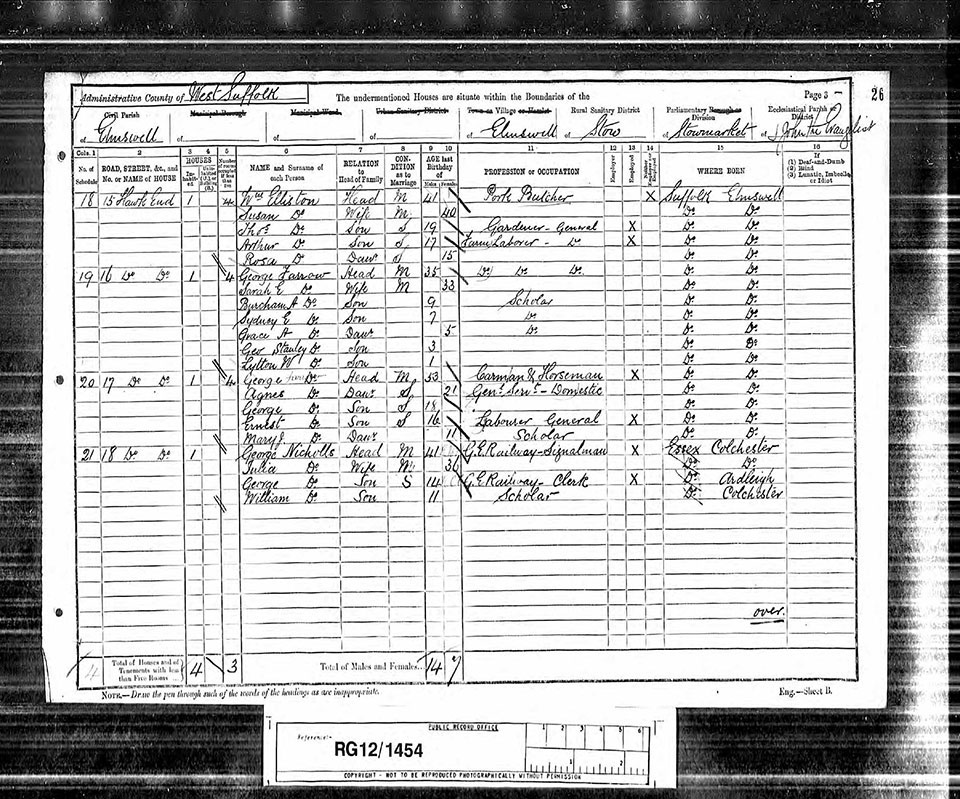 Administrative County of West Suffolk The undermentioned Houses are situate within the Boundaries of the Page 3 26
Civil Parish Municipal Borough Municipal Ward Urban Sanitary District Town or Village or Hamlet Rural Sanitary District Parliamentary Borough or Division Ecclesiastical Parish or District
of Elmswell of of of of Elmswell of Stow of Stowmarket of S John the Evanglist
Cols. 1 2 3 4 5 6 7 8 9 10 11 12 13 14 15 16
No. of Schedule ROAD, STREET, &c., and No. or NAME of HOUSE HOUSES Inhabited NAME and Surname of each Person RELATION to Head of Family CONDITION as to Marriage AGE last Birthday of Males Females PROFESSION or OCCUPATION Employer Employed WHERE BORN If (1) Deaf-and-Dumb (2) Blind (3) Lunatic, Imbecile or Idiot
18 15 Hawk End 1 4 Wm Elliston Head M 41 Pork Butcher X Suffolk Elmswell
Susan Do Wife M 40 Do Do
Thos Do Son S 19 Gardener - General X Do Do
Arthur Do Son S 17 Farm Laborer - Do X Do Do
Rosa Do Daur S 15 Do Do
19 16 Do Do 1 4 George Farrow Head M 35 Do Do Do Do Do
Sarah E Do Wife M 33 Do Do
Burcham A Do Son 9 Scholar Do Do
Sydney E Do Son 7 Do Do Do
Grace A Do Daur 5 Do Do Do
Geo Stanley Do Son 3 Do Do
Lytton W Do Son 1 Do Do
20 17 Do Do 1 4 George Do Head M 53 Carman & Horseman X Do Do
Agnes Do Daur S 21 Genl Servt - Domestic Do Do
George Do Son S 18 Do Do
Ernest Do Son S 16 Labourer General X Do Do
Mary J. Do Daur 11 Scholar Do Do
21 18 Do Do 1 George Nicholls Head M 41 G.E. Railway - Signalman X Essex Colchester
Julia Do Wife M 36 Do Do
George Do Son S 14 G.E. Railway - Clerk X Do Ardleigh
William Do Son 11 Scholar Do Colchester
over.
4 Total of Houses and of Tenements with less than Five Rooms 4 3 Total of Males and Females... 14 7
NOTE.—Draw the pen through such of the words of the headings as are inappropriate. Eng.—Sheet B.
PUBLIC RECORD OFFICE 1 2 3 4 5 6
Reference:-
RG12/1454 1 2
COPYRIGHT - NOT TO BE REPRODUCED PHOTOGRAPHICALLY WITHOUT PERMISSION